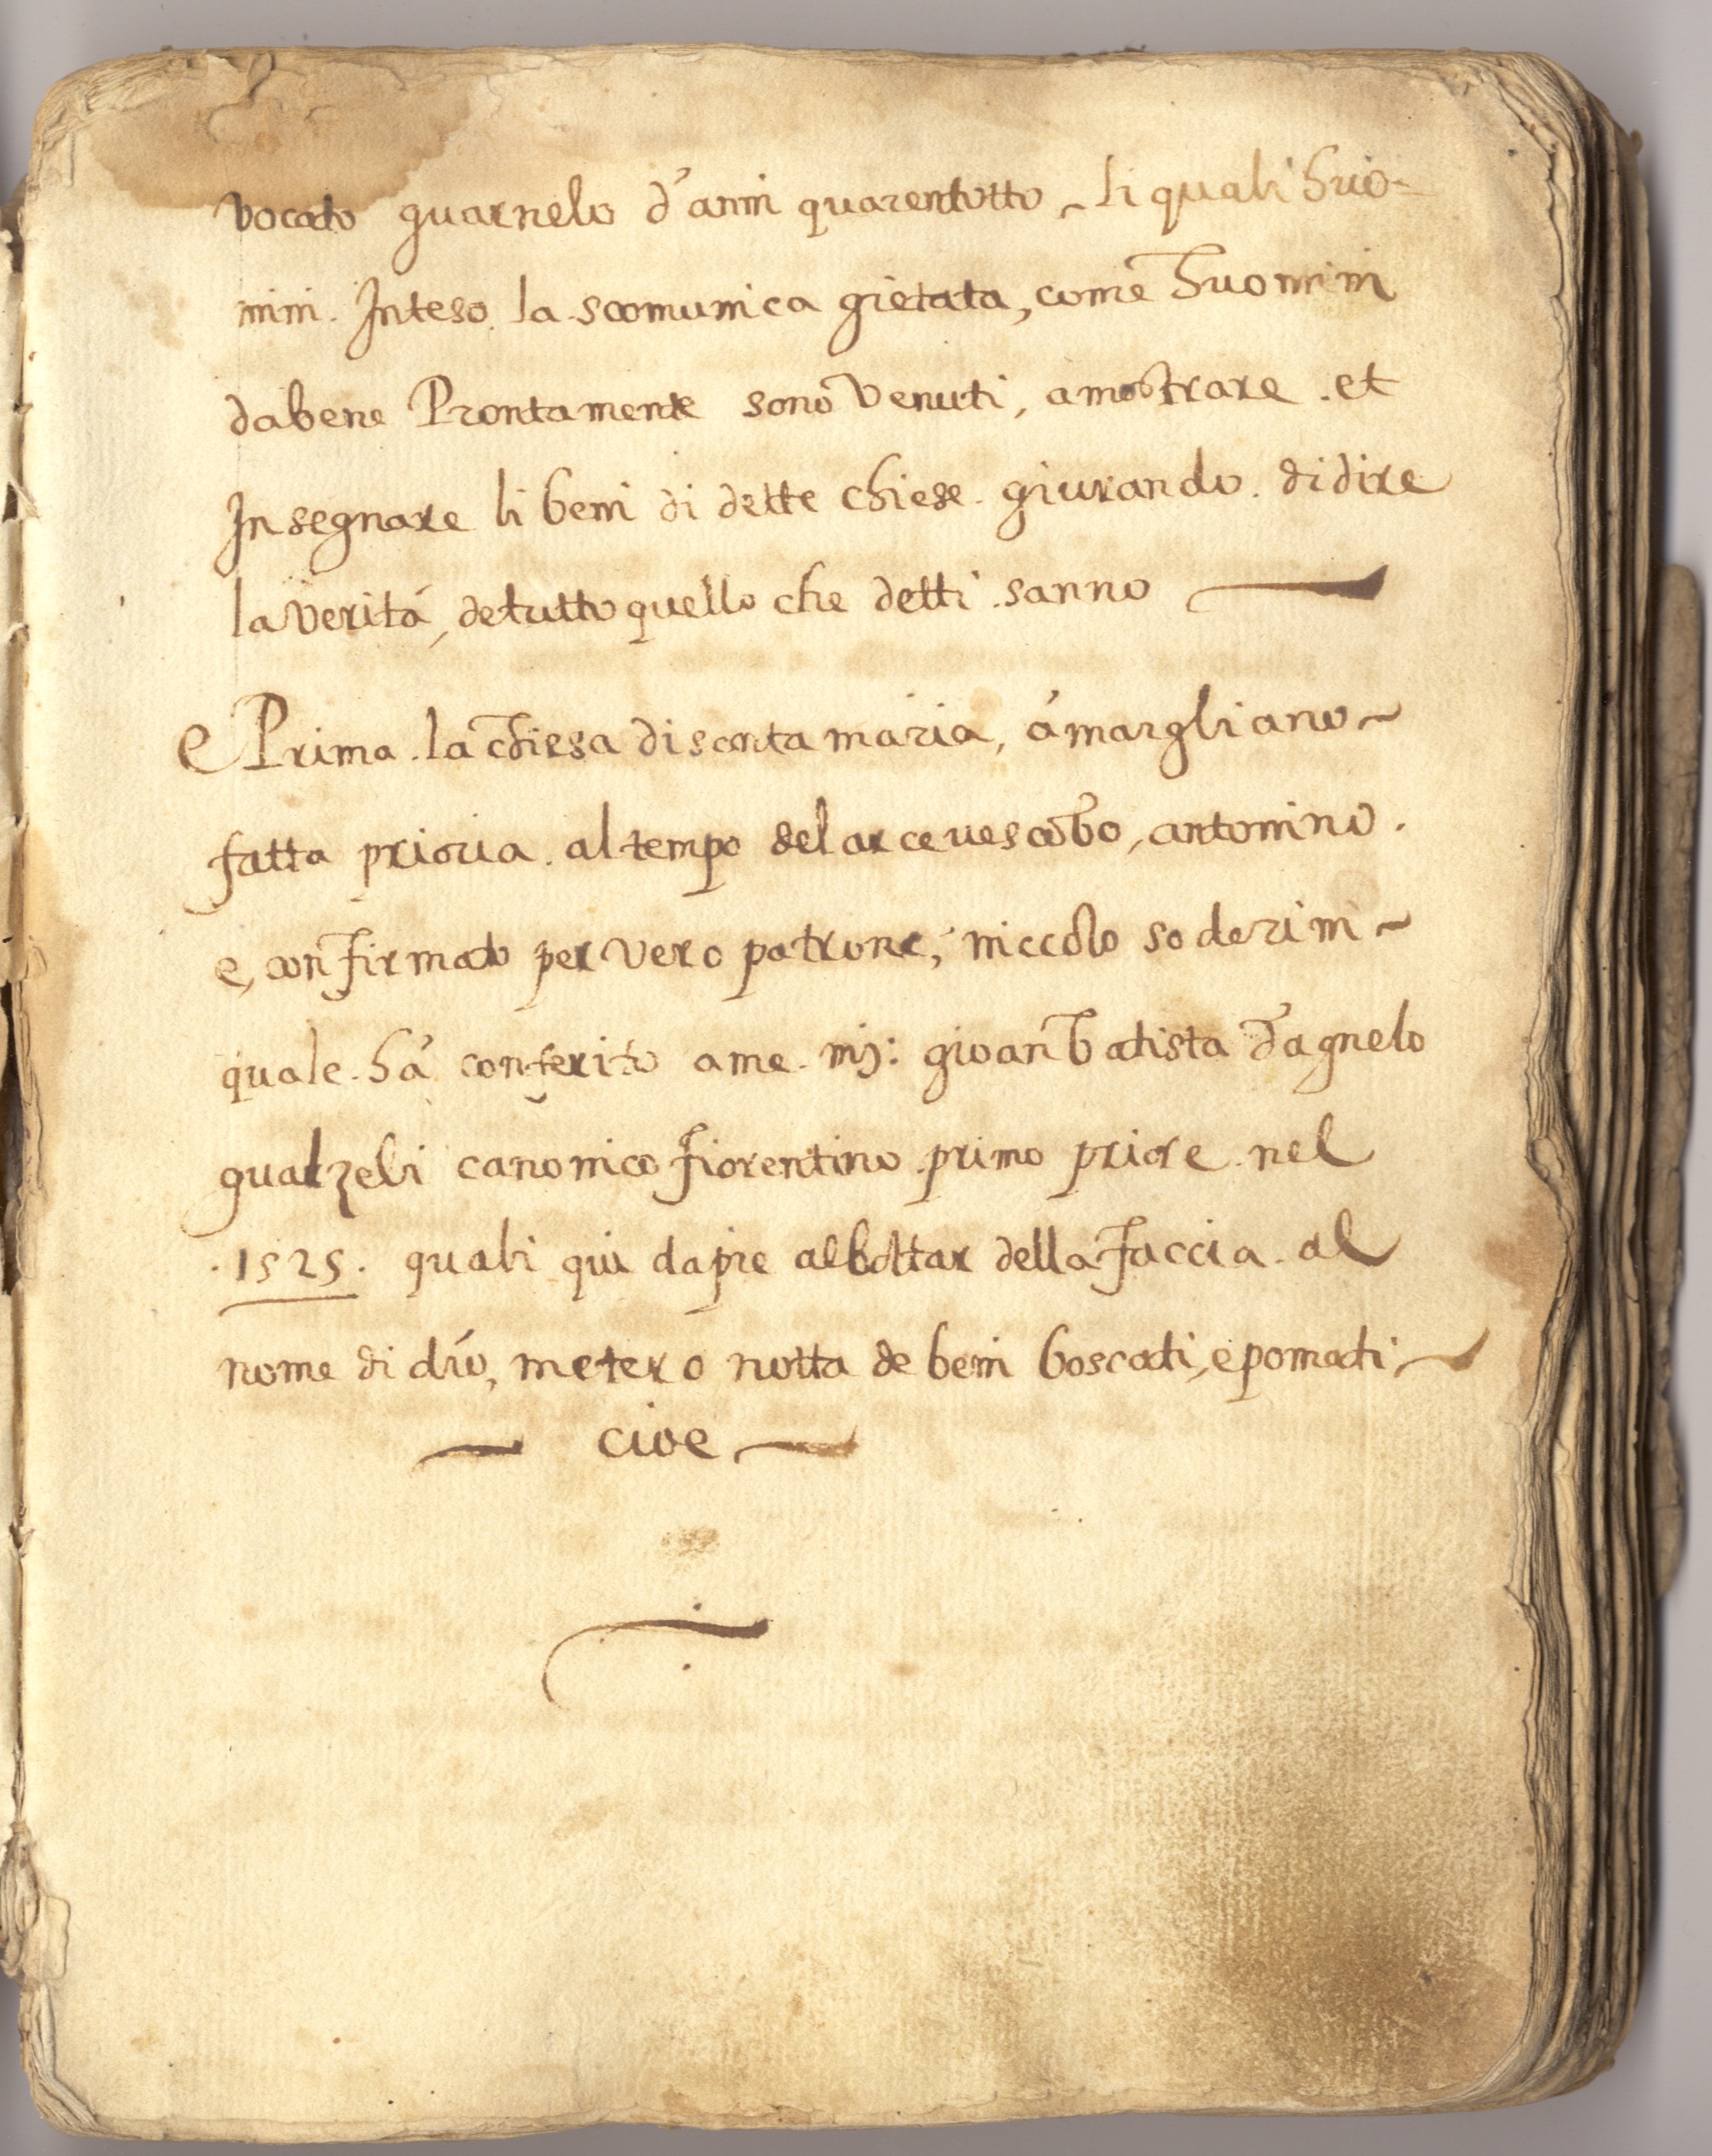 vocato guarnelo d'anni quarentotto li quali huo-
mini. Inteso. la scomunica gietata, come huomini
dabene Prontamente sono venuti, amostrare. et
Insegnare li beni di dette chiese. giurando. di dire
la verità, de tutto quello che detti. sanno
e Prima. la chiesa di santa maria, á margliano
fatta prioria. al tempo del arcevescobo, antonino.
e, confirmato per vero patrone, niccolo soderini
quale. há conferito a me. mj: giovanbatista d'agnelo
gualzeli canonico fiorentino. primo priore. nel
.1525. quali qui dapie al della faccia. al
nome di dio, metero notta de beni boscati, e pomati
cioe